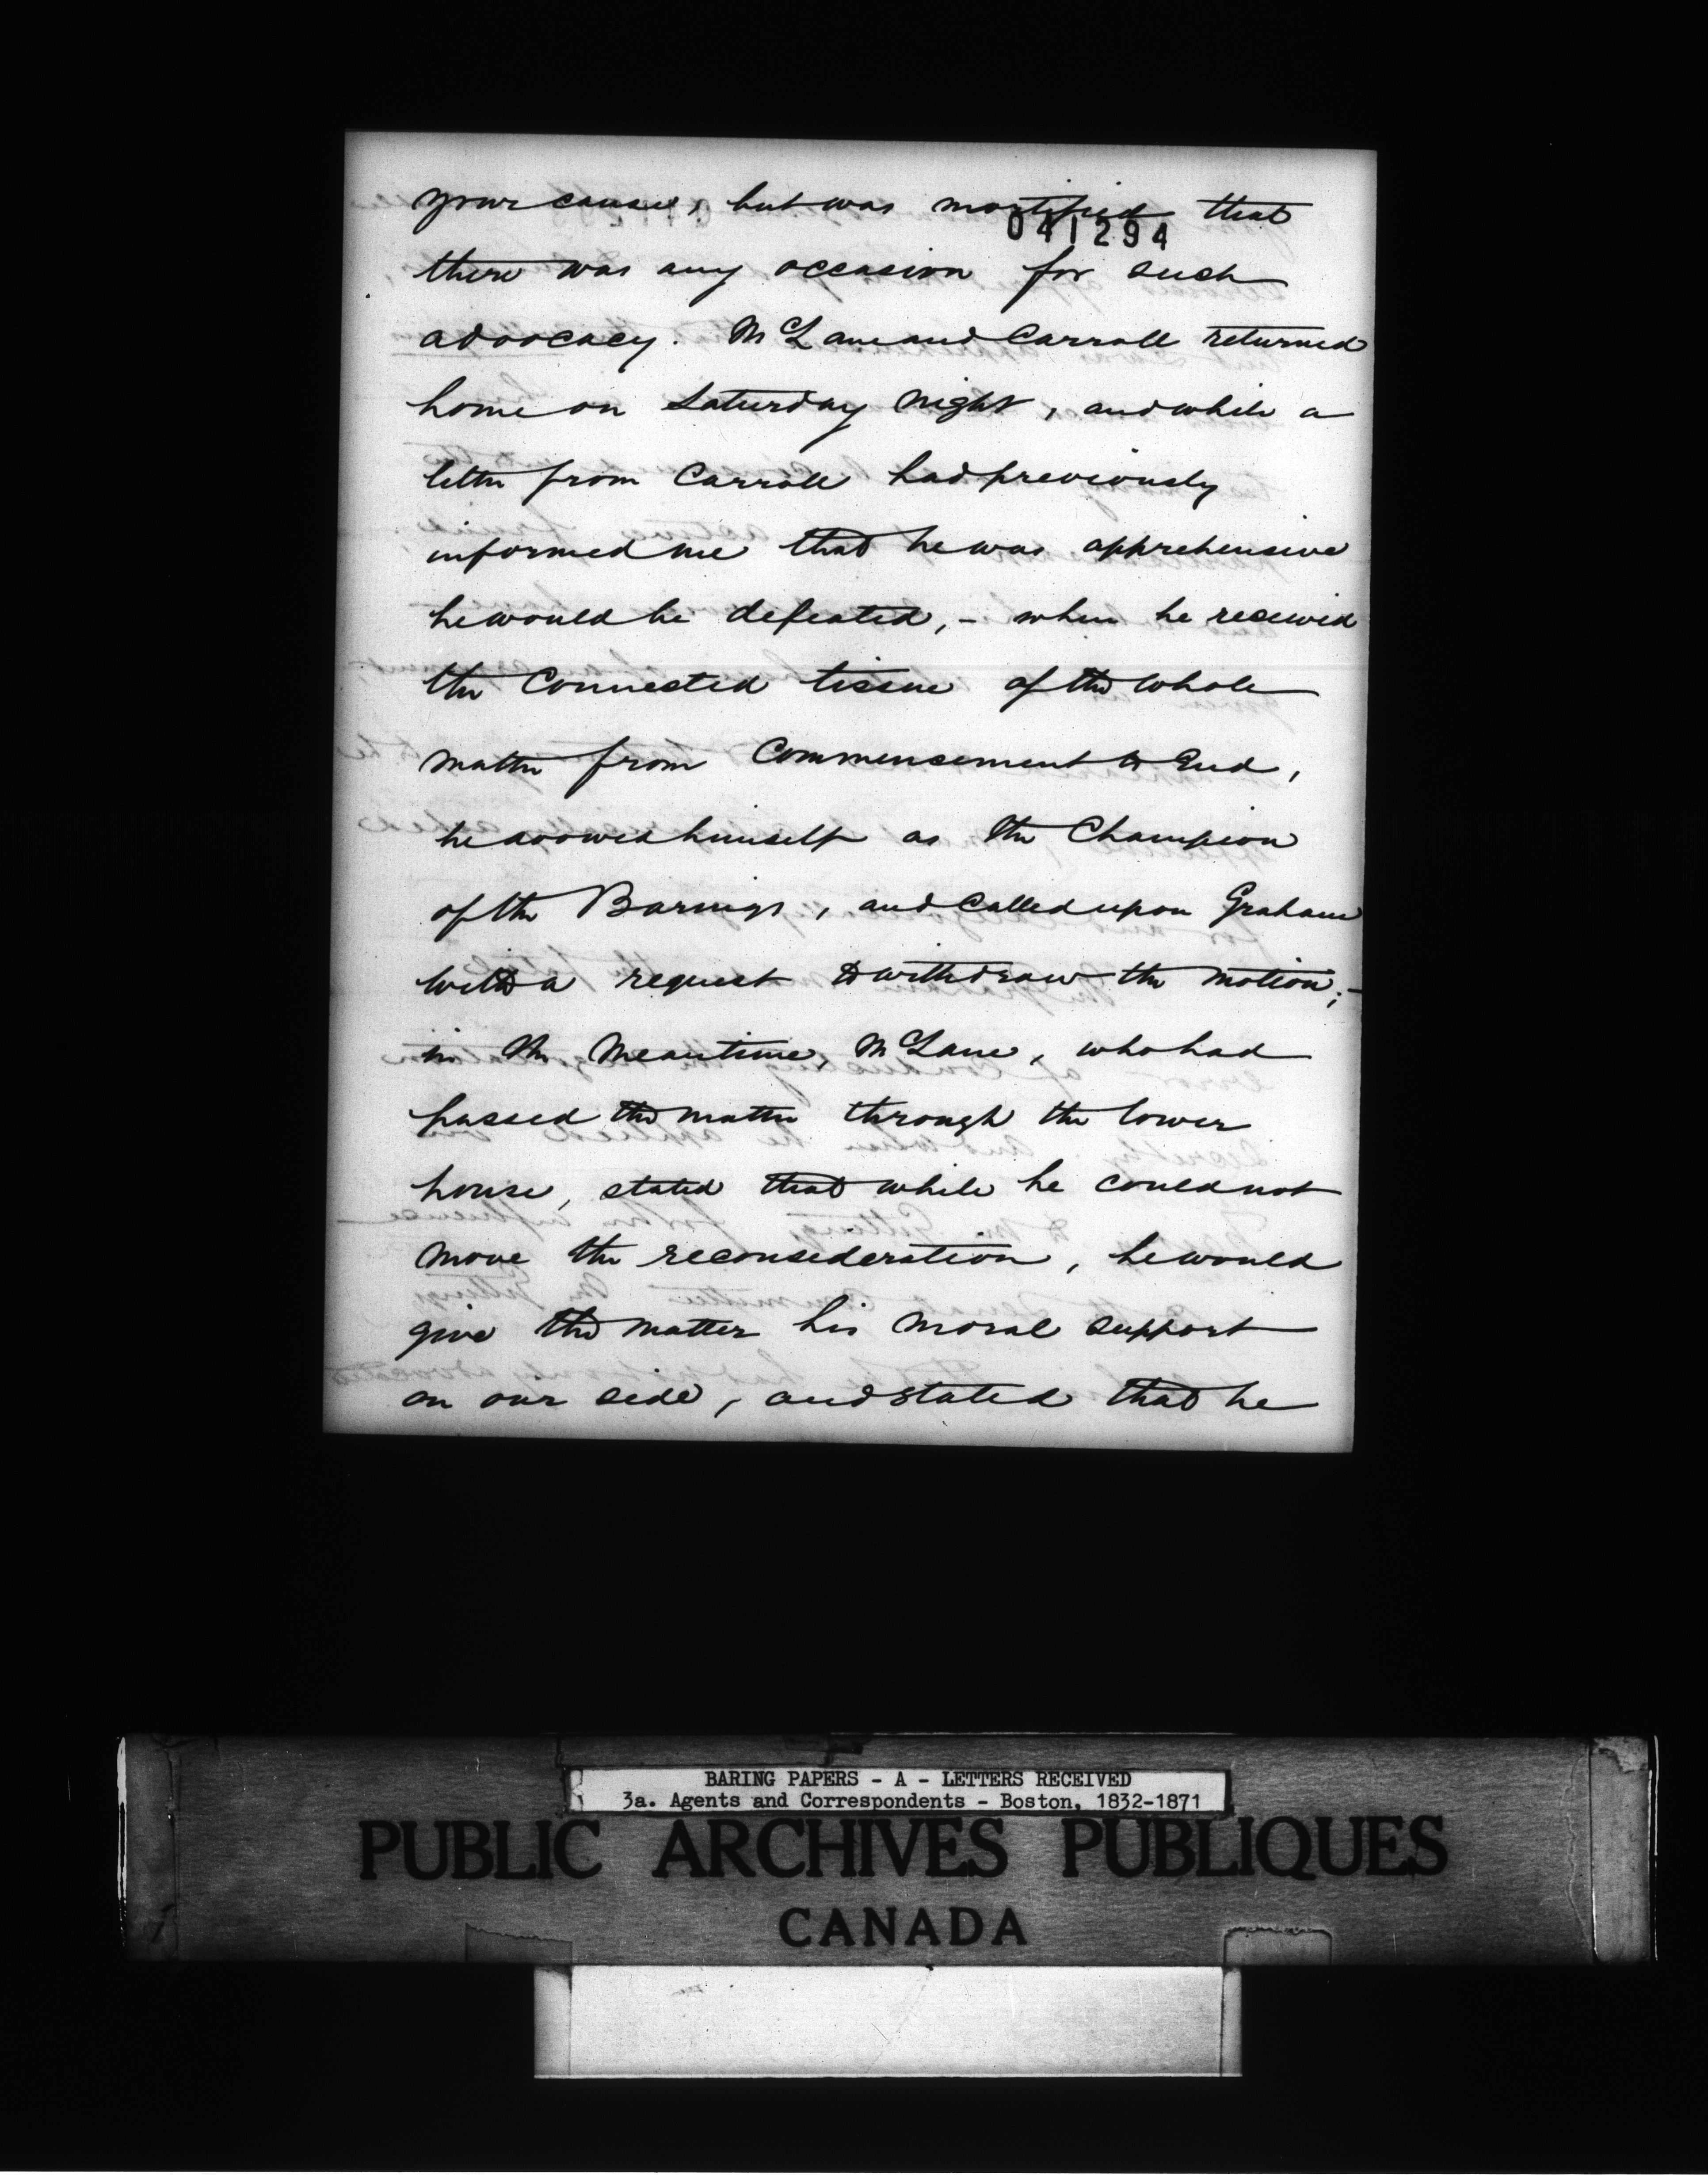 your cause, but was mortified that
041294
there was any occasion for such
advocacy. McLane and Carroll returned
home on Saturday night, and while a
letter from Carroll had previously
informed me that he was apprehensive
he would be defeated, - when he received
the Connected tissue of the whole
matter from Commencement to End,
he avowed himself as the Champion
of the Barings, and called upon Graham
with a request to withdraw the motion; -
in the meantime, McLane, who had
passed the matter through the lower
house, stated that while he could not
move the reconsideration, he would
give the matter his moral support
on our side, and stated that he
BARING PAPERS - A - LETTERS RECEIVED
3a. Agents and Correspondents - Boston, 1832-1871
PUBLIC ARCHIVES PUBLIQUES
CANADA